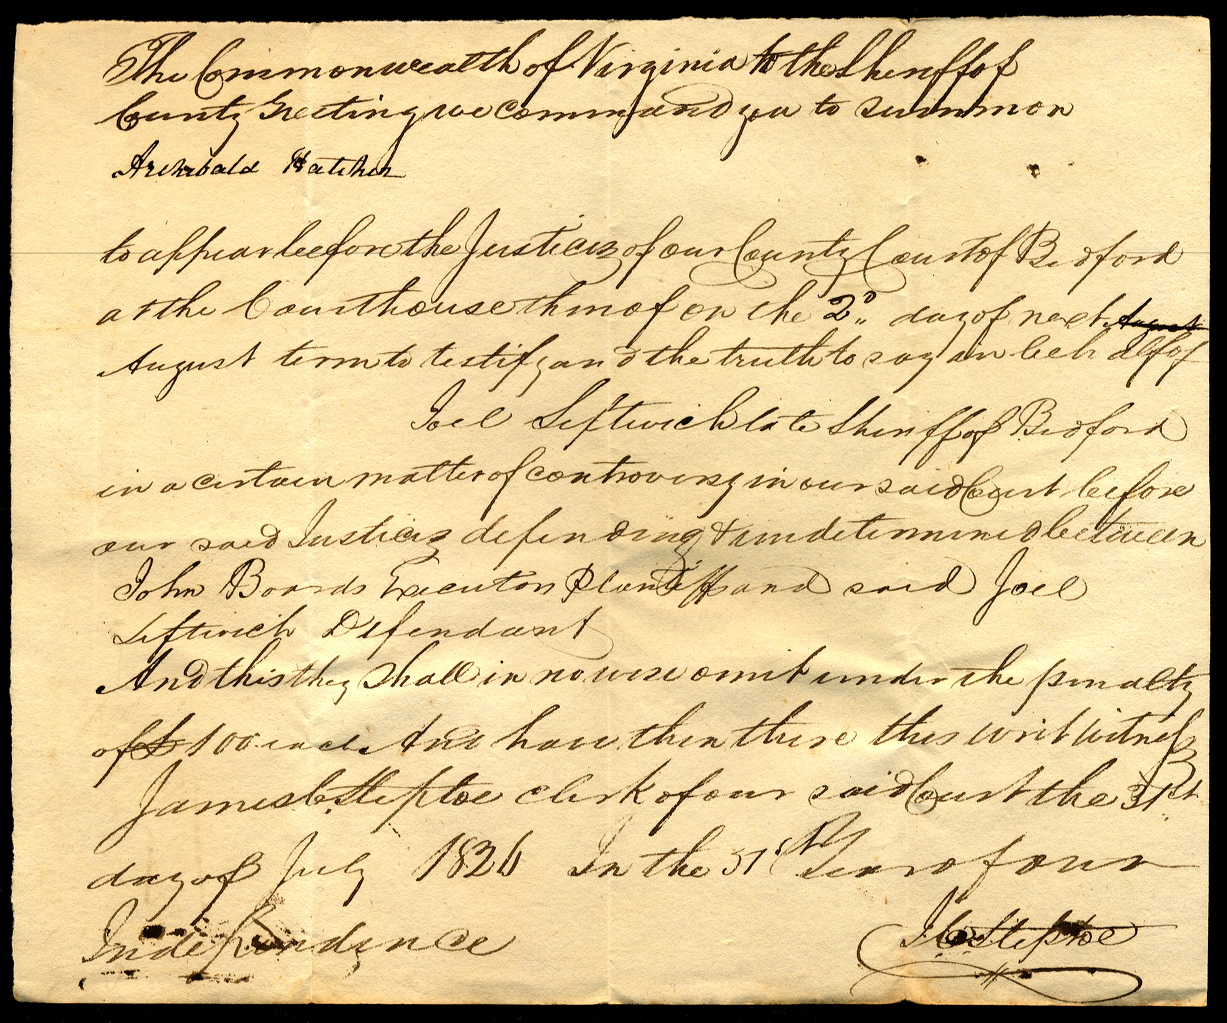 The Commonwealth of Virginia to the Sheriff of
County Greeting we command you to summon
Archibald Hatcher
to appear before the Justices of our County Court of Bedford
at the Courthouse thereof on the 2d day of next August
August term to testify and the truth to say in behalf of
Joel Leftwich late Sheriff of Bedford
in a certain matter of controversy in our said Court before
our said Justices depending & undetermined between
John Boards Executors Plaintiff and said Joel
Leftwich Defendant
And this they shall in no wise omit under the penalty
of £100 each And have then there this writ Witness
James C. Steptoe clerk of our said Court the 31st
day of July 1826 In the 51st Year of our
Independence
J C Steptoe